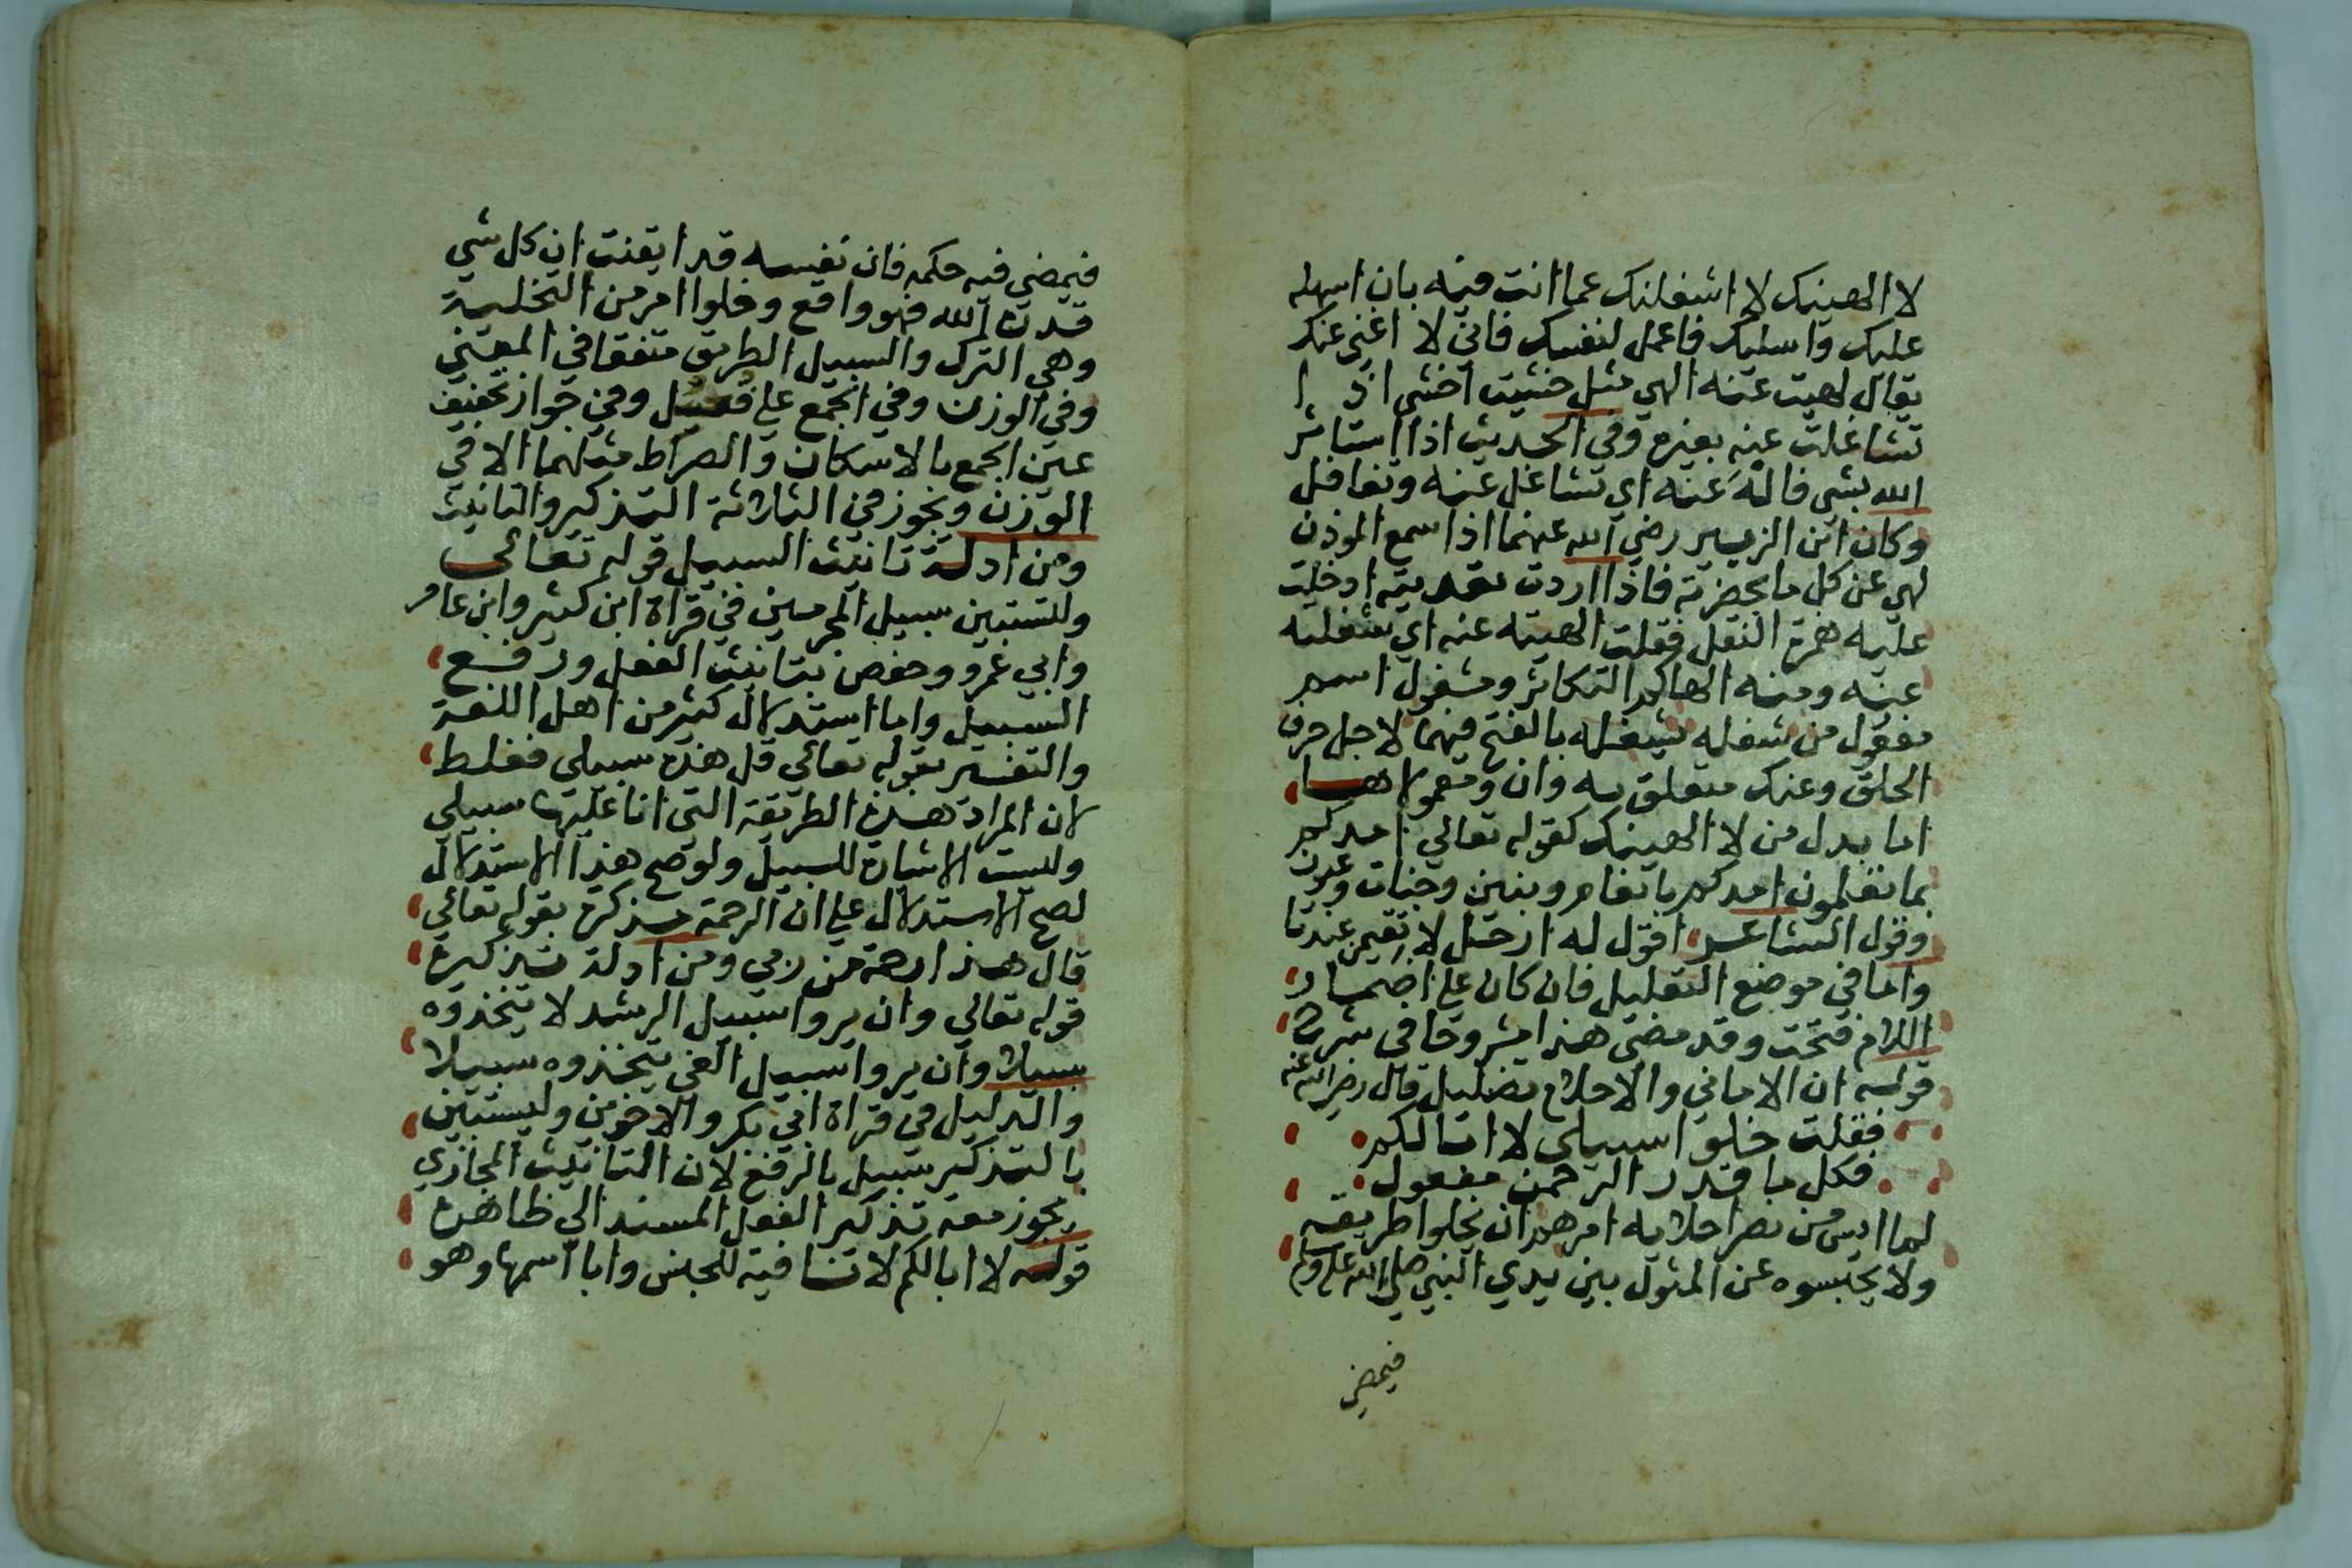 لا الهينك لا اشغلنك عما انت فيه بان اسهله
عليك واسليك فاعمل لنفسك فاني لا اغني عنك
يقال لهيت عنه الهي مثل خشيت اخشى اذ ا
تشاغلت عنه بغيره وفي الحديث اذا استاثر
الله بشي فالهَ عنه اي تشاغل عنه وتغافل
وكان ابن الزبير رضي الله عنهما اذا سمع الموذن
لهي عن كل ما بحضرته فاذا اردت تعديته ادخلت
عليه همزة النقل فقلت الهيته عنه اي شغلته
عنه ومنه الهاكم التكاثر ومشغول اسم
مفعول من شغله يشغله بالفتح فيهما لاجل حرف
الحلق وعنك متعلق به وان ومعمولاهــا
اما بدل من لا الهينك كقوله تعالي امدكم
بما تعلمون امدكم بانعام وبنين وجنات وعيون
وقول الشاعـر اقول له ارحل لا تقيمن عندنا
واما في موضع التعليل فان كان علي اضمــار
اللام فتحت وقد مضى هذا مشروحا في شرح
قولـه ان الاماني والاحلام تضليل قال رضي الله عنه
فقلت خلوا سبيلي لا ابا لكم
فكل ما قدر الرحمن مفعول
لما ايس من نصر اخلايه امرهم ان يخلوا طريقه
ولا يحبسوه عن المثول بين يدي النبي صلى الله عليه وسلم
فيمضي
فيمضي فيه حكمه فان نفسه قد ايقنت ان كل شي
قدره الله فهو واقع وخلوا امر من التخلية
وهي الترك والسبيل الطريق متفقا في المعنى
وفي الوزن وفي الجمع علي فعل وفي جواز تخفيف
عين الجمع بالاسكان والصراط مثلهما الا في
الوزن ويجوز في الثلاثة التذكير والتانيث
ومن ادلة تانيث السبيل قوله تعالـى
ولتستبين سبيل المجرمين في قراة ابن كثير وابن عامر
وابي عمرو وحفص بتانيث الفعل ورفـع
السبيل واما استدلال كثير من اهل اللغة
والتفسير بقوله تعالي قل هذه سبيلي فغلط
لان المراد هـذه الطريقة التي انا عليها سبيلي
وليست الاشارة للسبيل ولو صح هذا الاستدلال
لصح الاستدلال علي ان الرحمة مـذكرة بقوله تعالي
قال هـذا رحمة من ربي ومن ادلة تذكيره
قوله تعالي وان يروا سبيل الرشد لا يتخذوه
سبيلا وان يروا سبيل الغي يتخذوه سبيلا
والدليل في قراة ابي بكر والاخوين وليستبين
بالتذكير سبيل بالرفع لان التانيث المجازي
يجوز معه تذكير الفعل المسند الي ظاهره
قولـه لا ابا لكم لا نـافية للجنس وابا اسمها وهو